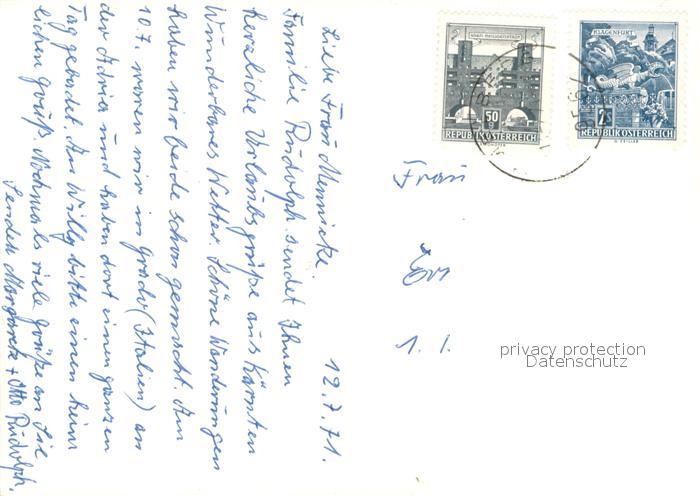 12.7.71.
Liebe Frau Mennicke
Familie Rudolph sendet Ihnen
herzliche Urlaubsgrüße aus Kärnten
Wunderbares Wetter. Schöne Wanderungen
haben wir beide schon gemacht. Am
10.7. waren wir in Grado (Italien) an
der Adria und haben dort einen ganzen
Tag gebadet. An Willy bitte einen
lichen Gruß. Nochmals viele Grüße an Sie
Senden Margarete + Otto Rudolph.
WIEN-HEILIGENSTADT
50
REPUBLIK ÖSTERREICH
KLAGENFURT
2
REPUBLIK ÖSTERREICH
Frau
1. 1.
privacy protection
Datenschutz